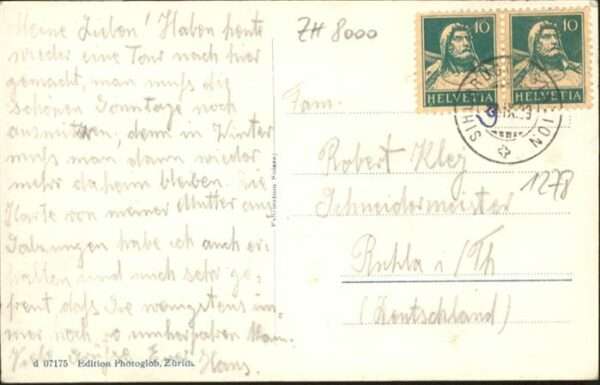 Meine Lieben! Haben heute
wieder eine Tour nach hier
gemacht, man muß die
schönen Sonntage noch
ausnützen, denn in Winter
muß man dann wieder
mehr daheim bleiben. Die
Karte von meiner Mutter aus
Salzungen habe ich auch er-
halten und mich sehr ge-
freut daß Sie wenigstens im-
mer noch so umherfahren kann.
Viele Grüße Euer Hans.
d 07175 Edition Photoglob, Zürich
ZH 8000
10 10
HELVETIA HELVETIA
STATION
Fam.
Robert Kley
Schneidermeister
1278
Ruhla i/Th
(Deutschland)